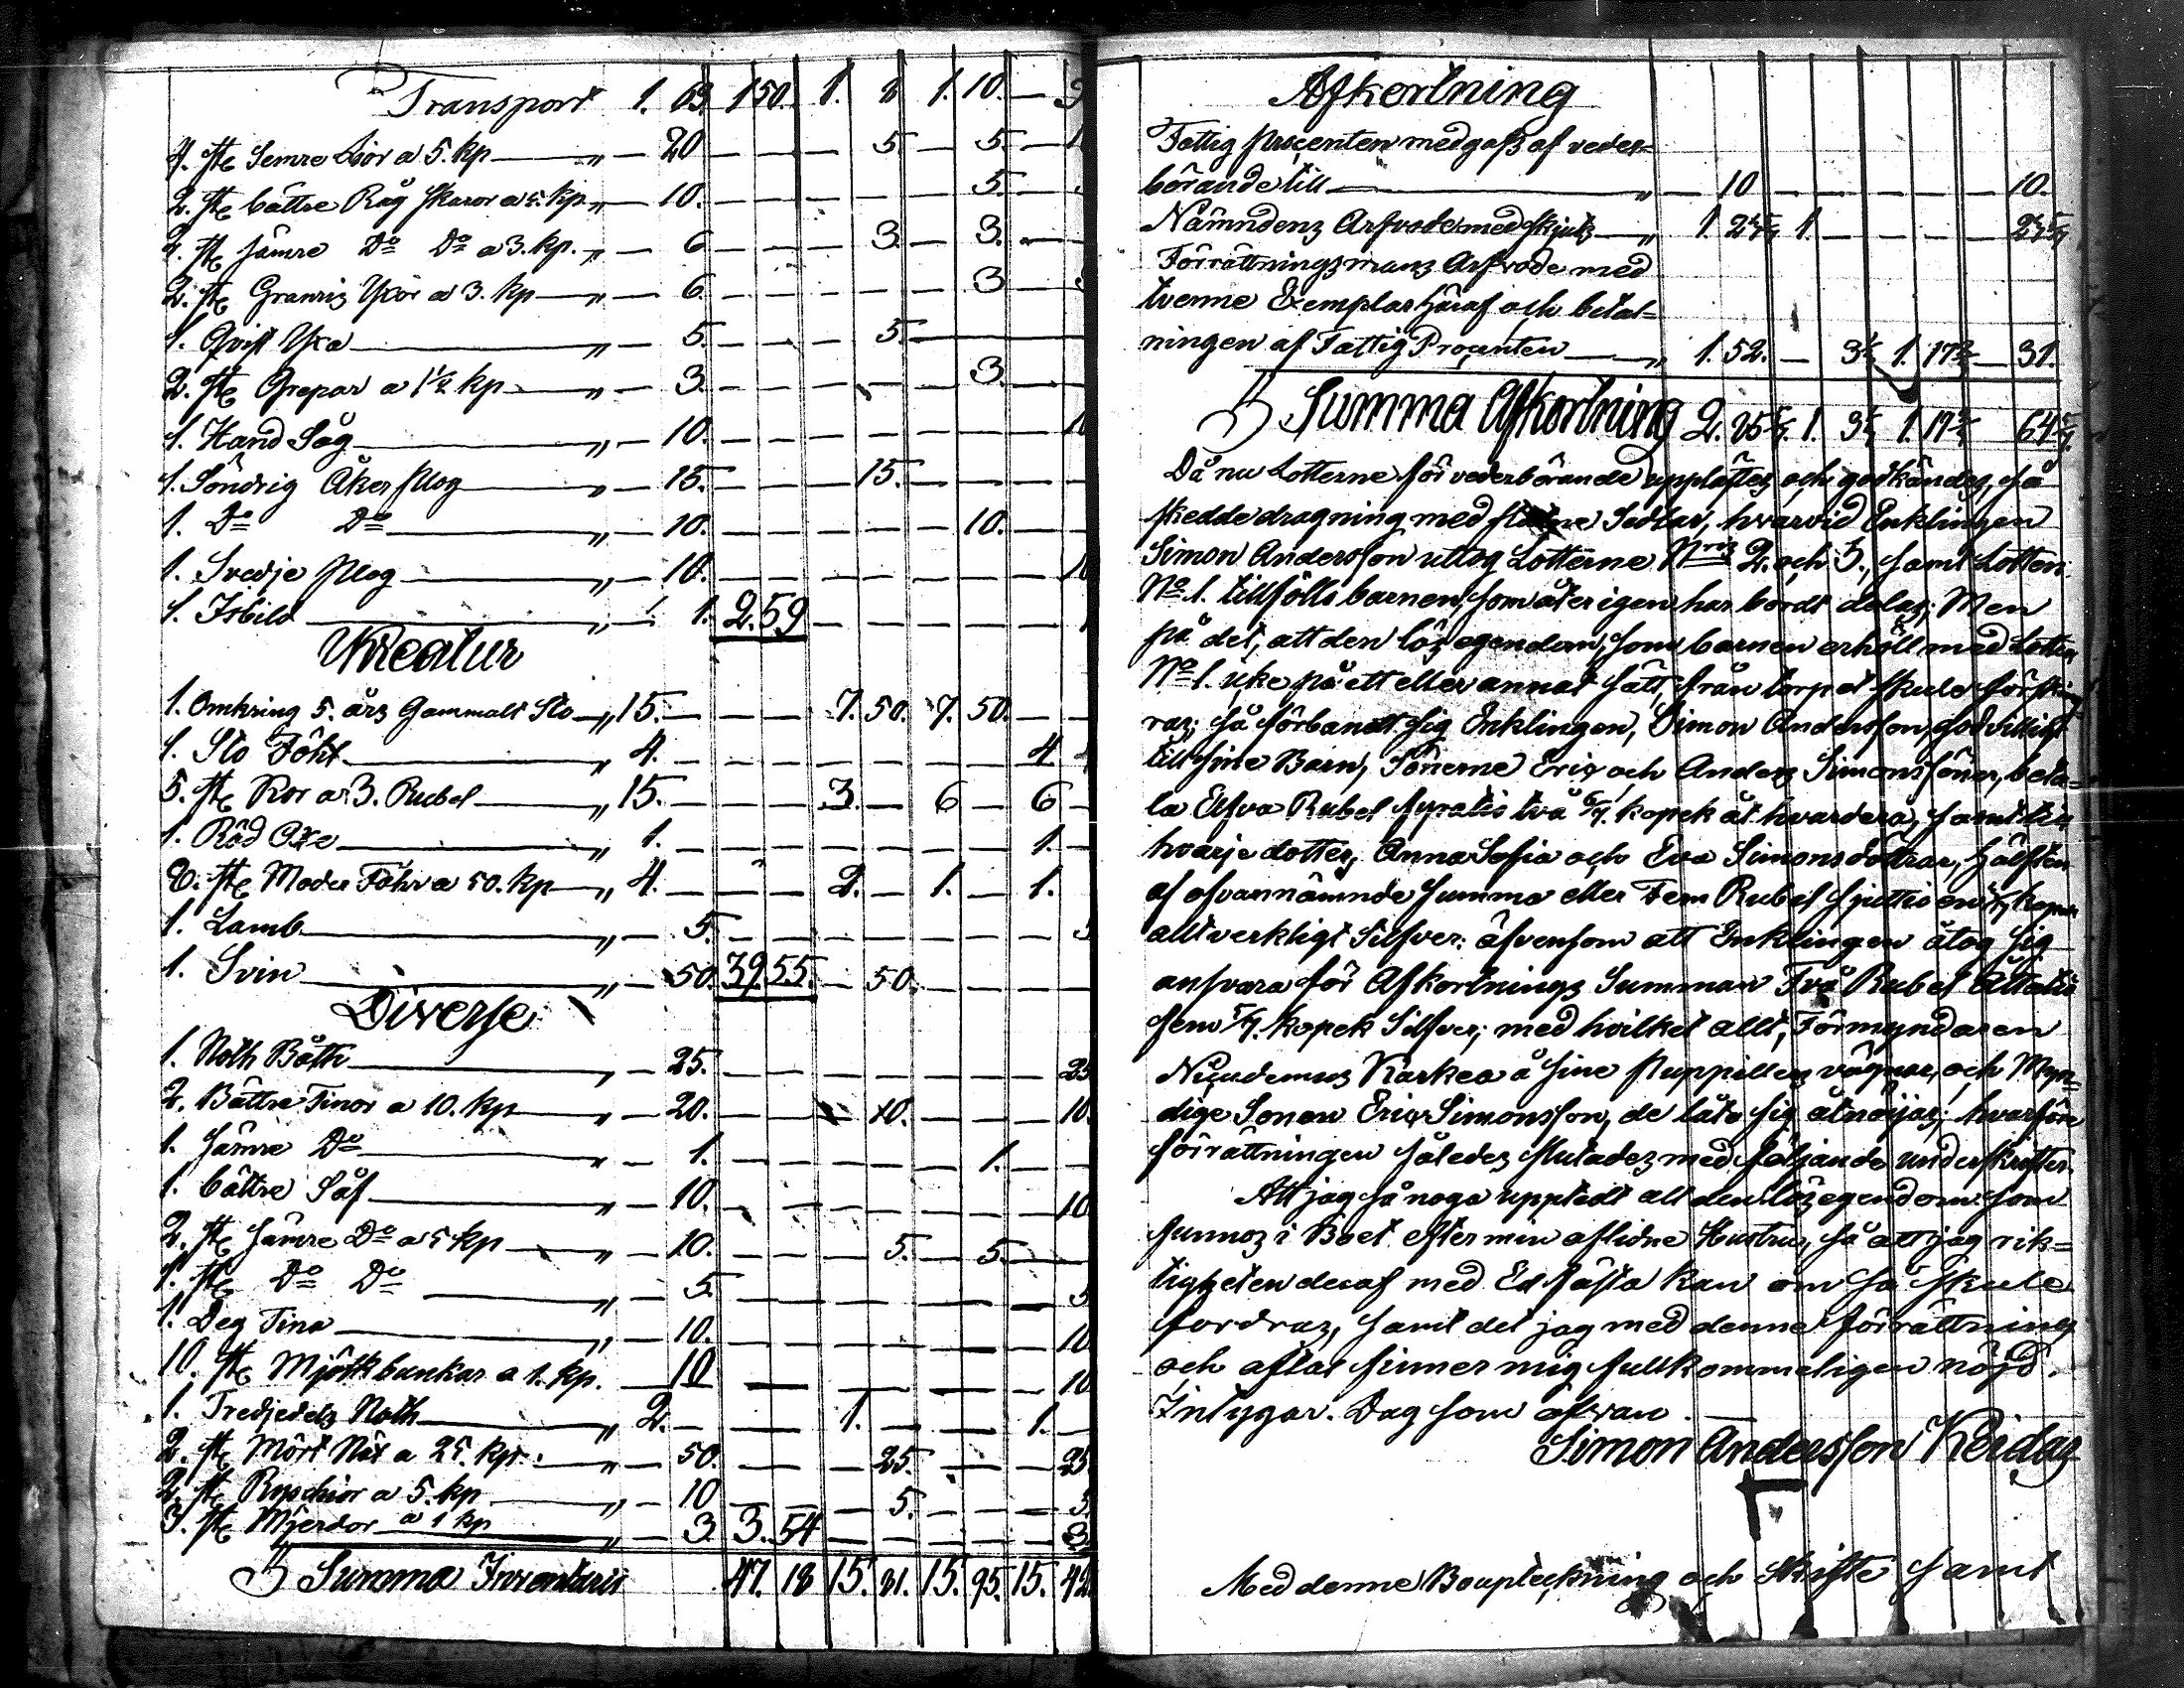 Transport 1. 63. 1 50. 1. 8 1. 10. —
4. st. Semre Lior a 5. kp — „ — 20 — — — 5. — 5. —
2. st. bättre Råg skaror a 5. kp „ — 10. — — — — — 5. —
2. st. sämre Do Do a 3. kp. „ — 6 — — — 3. — 3. —
2. st. Granris Yxor a 3. kp — „ — 6. — — — — — 3 —
1. Qvist Yxa — „ — 5. — — — 5. —
2. st. Grepar a 1½ kp — „ — 3. — — — — — 3. —
1. Hand Såg — „ — 10. — — — — — — 10
1. Söndrig Åker plog — „ — 15. — — — 15. — — —
1. Do Do — „ — 10. — — — — — 10. —
1. Svedje plog — „ — 10. — — — — — — 10
1. Isbild — „ 1. 2. 59 — — — — —
Kreatur
1. Omkring 5. års Gammalt Sto — „ 15. — — — 7. 50. 7. 50. — —
1. Sto Föhl — „ 4. — — — — — — — 4
5. st. Kor a 3. Rubel — „ 15. — — — 3. — 6 — 6 —
1. Röd Oxe — „ 1. — — — — — — — 1. —
8. st. Moder Fåhr a 50. kp — „ 4. — — — 2. — 1. — 1. —
1. Lamb — „ — 5. — — — — — — — 5
1. Svin — „ — 50. 39. 55. — 50. — — —
Diverse
1. Noth Båth — „ — 25. — — — — — — — 25
2. Bättre Tinor a 10. kp — „ — 20. — — — 10. — — — 10.
1. sämre Do — „ — 1. — — — — — 1. — —
1. bättre Såf — „ — 10. — — — — — — — 10
2. st. sämre Do a 5 kp — „ — 10. — — — 5. — 5. — —
1. st. Do Do — „ — 5. — — — — — — — 5.
1. Deg Tina — „ — 10. — — — — — — — 10
10. st. Mjölkbunkar a 1. kp. — 10 — — — — — 10
1. Tredjedels Noth — „ 2. — — — 1. — — — 1. —
2. st. Mört Nät a 25. kp. „ — 50. — — — 25. — — — 25
2. st. Ryschior a 5. kp — „ — 10 — — — 5. — — — 5.
3. st. Mjerdor a 1 kp — „ — 3. 3. 54 — — — — — 3.
Summa Inventarii 47. 18 15. 81. 15. 95. 15. 42
Afkortning
Fattig procenten medgafs af veder=
börande till — „ — 10 — — — — — — 10.
Nämndens Arfvode med skjuts — „ 1. 24 5/7 1. — — — — — 24 5/7
Förrättningsmans Arfvode med
tvenne Exemplar häraf och betal=
ningen af Fattig Procenten — „ 1. 52. — 3 1. 17 — 31.
Summa Afkortning 2. 85 5/7. 1. 3 1. 17 64 5/7.
Då nu Lotterne för vederbörande upplästes och godkändes, så
skedde dragning med Sedlar, hvarvid Enklingen
Simon Andersson uttog Lotterne Nris 2. och 3., samt Lotten
No 1. tillföll barnen, som åter igen har bordt delas; Men
på det, att den lös egendom, som barnen erhöll med Lotten
No 1. icke på ett eller annat sätt, från torpet skule försking
ras; så förbandt sig Enklingen, Simon Andersson, godvilligt
till sine Barn, Sönerne Eric och Anders Simonssöner, beta=
la Elfva Rubel fyratio två 6/7. kopek åt hvardera, samt till
hvarje dotter, Anna Sofia och Eva Simonsdöttrar, hälften
af ofvannämnde summa eller Fem Rubel sjuttio en kopek
allt verkligt Silfver: äfvensom att Enklingen åtog sig
ansvara för Afkortnings Summan Två Rubel Åttatio
fem 5/7. kopek Silfver; med hvilket allt, Förmyndaren
Nicodemus Karkea å sine Puppillers vägnar, och Myn=
dige Sonen Eric Simonsson, de läto sig åtnöjas; hvarföre
förrättningen således slutades med följande underskrifter.
Att jag så noga upptedt all den lös egendom som
funnos i Boet efter min aflidne Hustru, så att jag rik=
tigheten deraf med Ed fästa kan om så skule
fordras, samt det jag med denne förrättning
och aflat finner mig fullkommeligen nöjd.
Intygar. Dag som ofvan.
Simon Andersson Keidas
Med denne Bouptekning och Skifte samt